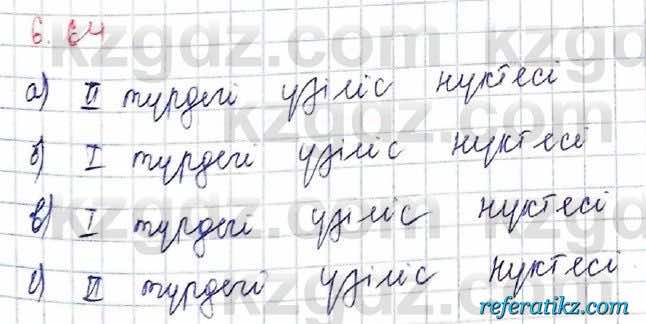 6.64
а) II түрдегі үзіліс нүктесі
б) I түрдегі үзіліс нүктесі
в) I түрдегі үзіліс нүктесі
с) II түрдегі үзіліс нүктесі
kzgdz.com
referatikz.com